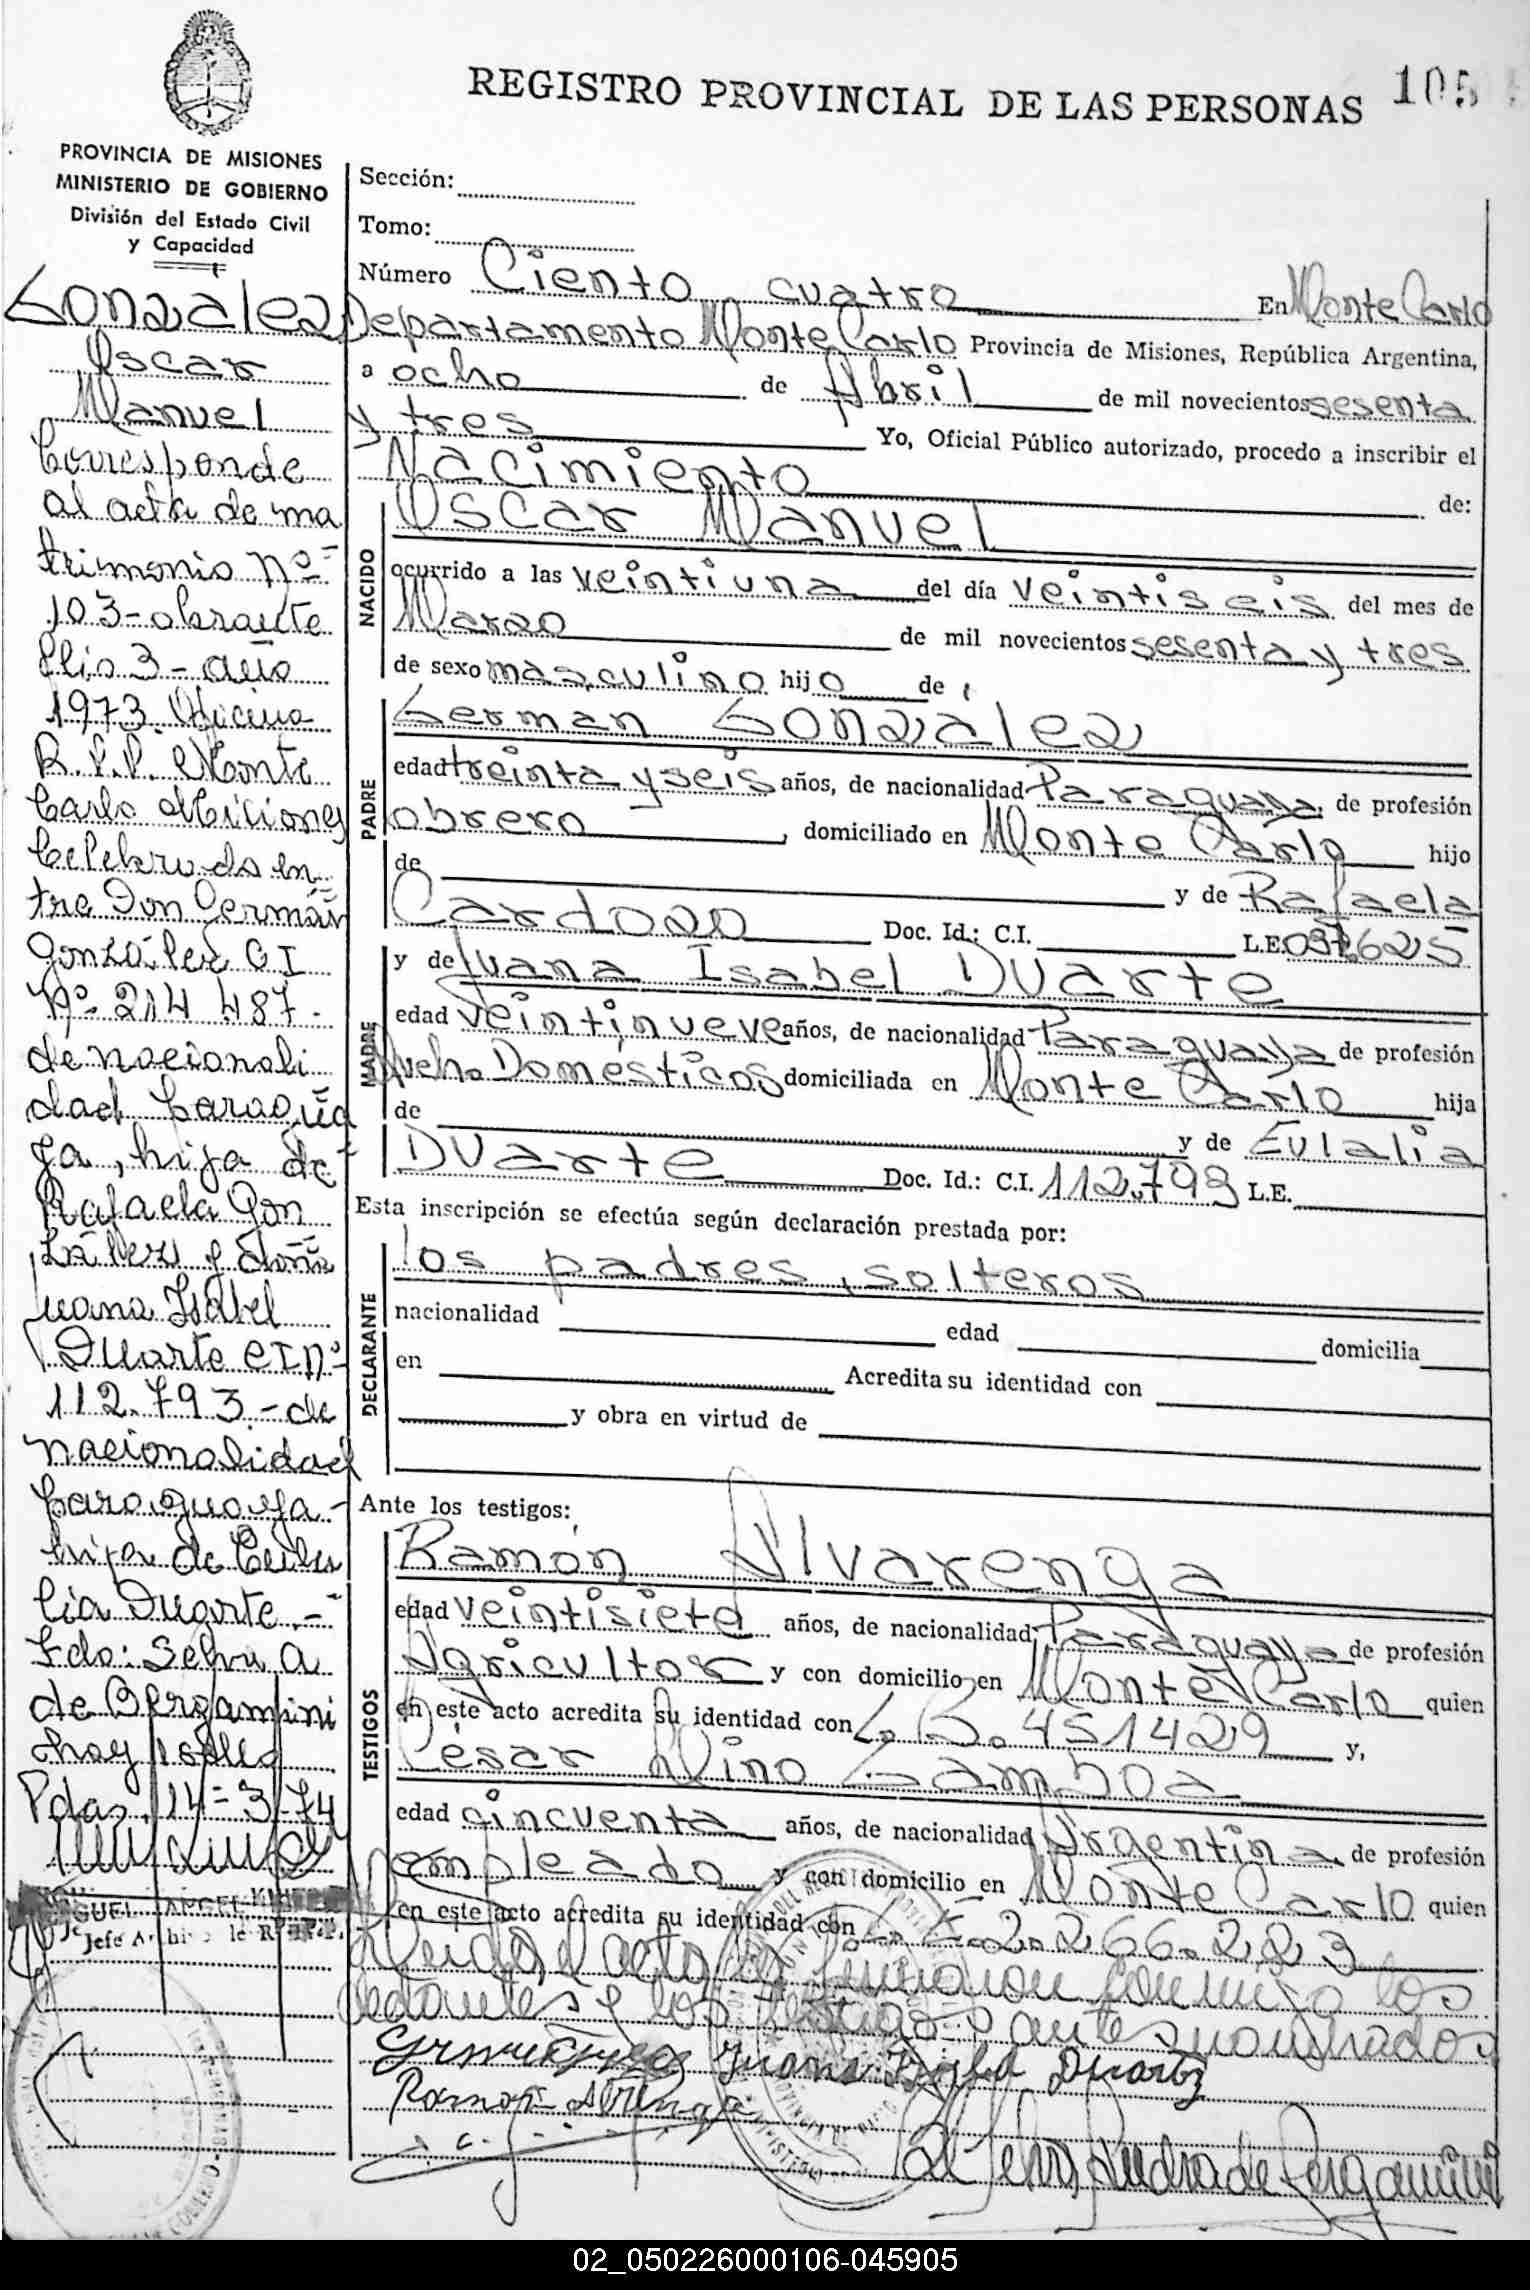 REGISTRO PROVINCIAL DE LAS PERSONAS 105
PROVINCIA DE MISIONES
MINISTERIO DE GOBIERNO
División del Estado Civil
y Capacidad
Gonzalez
Oscar
Manuel
Corresponde
al acta de ma
trimonio Nº
103-obrante
flio 3-año
1973. Oficina
R.P.P. Monte
Carlo Miciones
Celebrada en
tre Don Germán
González C I
Nº 214.487-
de nacionali
dad Paragua
ya, hijo de
Rafaela Gon
zález y doña
Juana Isabel
Duarte CI Nº
112.793-de
nacionalidad
paraguaya-
hija de Eula
lia Duarte.-
Fdo: Selva A
de Bergamini
hay sello
Pdas, 14-3-74
MIGUEL ANGEL
Jefe Archivo de R.P.P.
Sección:
Tomo:
Número Ciento cuatro En Monte Carlo
Departamento Monte Carlo Provincia de Misiones, República Argentina,
a ocho de Abril de mil novecientos sesenta
y tres Yo, Oficial Público autorizado, procedo a inscribir el
Nacimiento de:
NACIDO
Oscar Manuel
ocurrido a las veintiuna del día veintiseis del mes de
Marzo de mil novecientos sesenta y tres
de sexo masculino hijo de
PADRE
German Gonzalez
edad treinta y seis años, de nacionalidad Paraguaya, de profesión
obrero, domiciliado en Monte Carlo hijo
de y de Rafaela
Cardozo Doc. Id.: C.I. L.E.
MADRE
y de Juana Isabel Duarte
edad veintinueve años, de nacionalidad Paraguaya de profesión
Queh. Domésticos domiciliada en Monte Carlo hija
de y de Eulalia
Duarte Doc. Id.: C.I. 112.793 L.E.
Esta inscripción se efectúa según declaración prestada por:
DECLARANTE
los padres, solteros
nacionalidad edad domicilia
en Acredita su identidad con
y obra en virtud de
Ante los testigos:
TESTIGOS
Ramón Alvarenga
edad veintisiete años, de nacionalidad Paraguaya de profesión
Agricultor y con domicilio en Monte Carlo quien
en este acto acredita su identidad con L.B. 451429 y,
César Nino Gamboa
edad cincuenta años, de nacionalidad Argentina de profesión
empleado y con domicilio en Monte Carlo quien
en este acto acredita su identidad con L.E. 2.266.223
Leida el acta la firmaron conmigo los
declarantes y los testigos antes nombrados
Juana Isabel Duarte
Ramon Alvrenga
Selva Andra de Bergamini
02_050226000106-045905